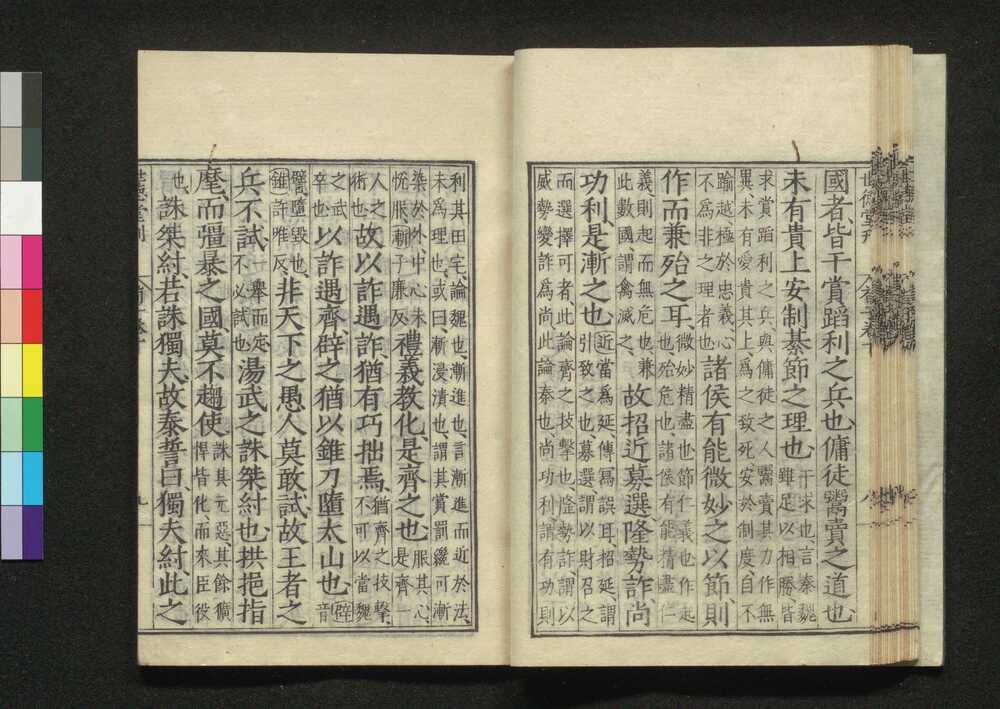 國者、皆干賞蹈利之兵也、傭徒鬻賣之道也、
未有貴上安制綦節之理也、干求也、言秦魏雖足以相勝、皆
求賞蹈利之兵與傭徒之人鬻賣其力作無異未有愛貴其上爲之致死安於制度自不
踰越極於忠義心不爲非之理者也諸侯有能微妙之以節、則
作而兼殆之耳、微妙精盡也、節仁義也、作起也、殆危也、諸侯有能精盡仁
義則起而無危也兼此數國謂禽滅之、故招近募選隆勢詐尚
功利、是漸之也、近當爲延傳寫誤耳、招延謂引致之也、募選謂以財召之
而選擇可者、此論齊之技擊也、隆勢詐謂以威勢變詐爲尚、此論秦也、尚功利謂有功則
利其田宅、論魏也、漸進也、言漸進而近於法、未爲理也、或曰、漸浸漬也、謂其賞罰纔可漸
染於外中心未悅服漸子廉反禮義教化、是齊之也、服其心、是齊一
人之術也故以詐遇詐、猶有巧拙焉、猶齊之技擊、不可以當魏
之武卒也以詐遇齊、辟之猶以錐刀墮太山也、辟音
譬墮毀也、錐許唯反非天下之愚人莫敢試、故王者之
兵不試、一舉而定、不必試也湯武之誅桀紂也、拱挹指
麾、而彊暴之國、莫不趨使、誅其元惡其餘獷悍皆化而來臣役
也、誅桀紂、若誅獨夫、故泰誓曰獨夫紂、此之